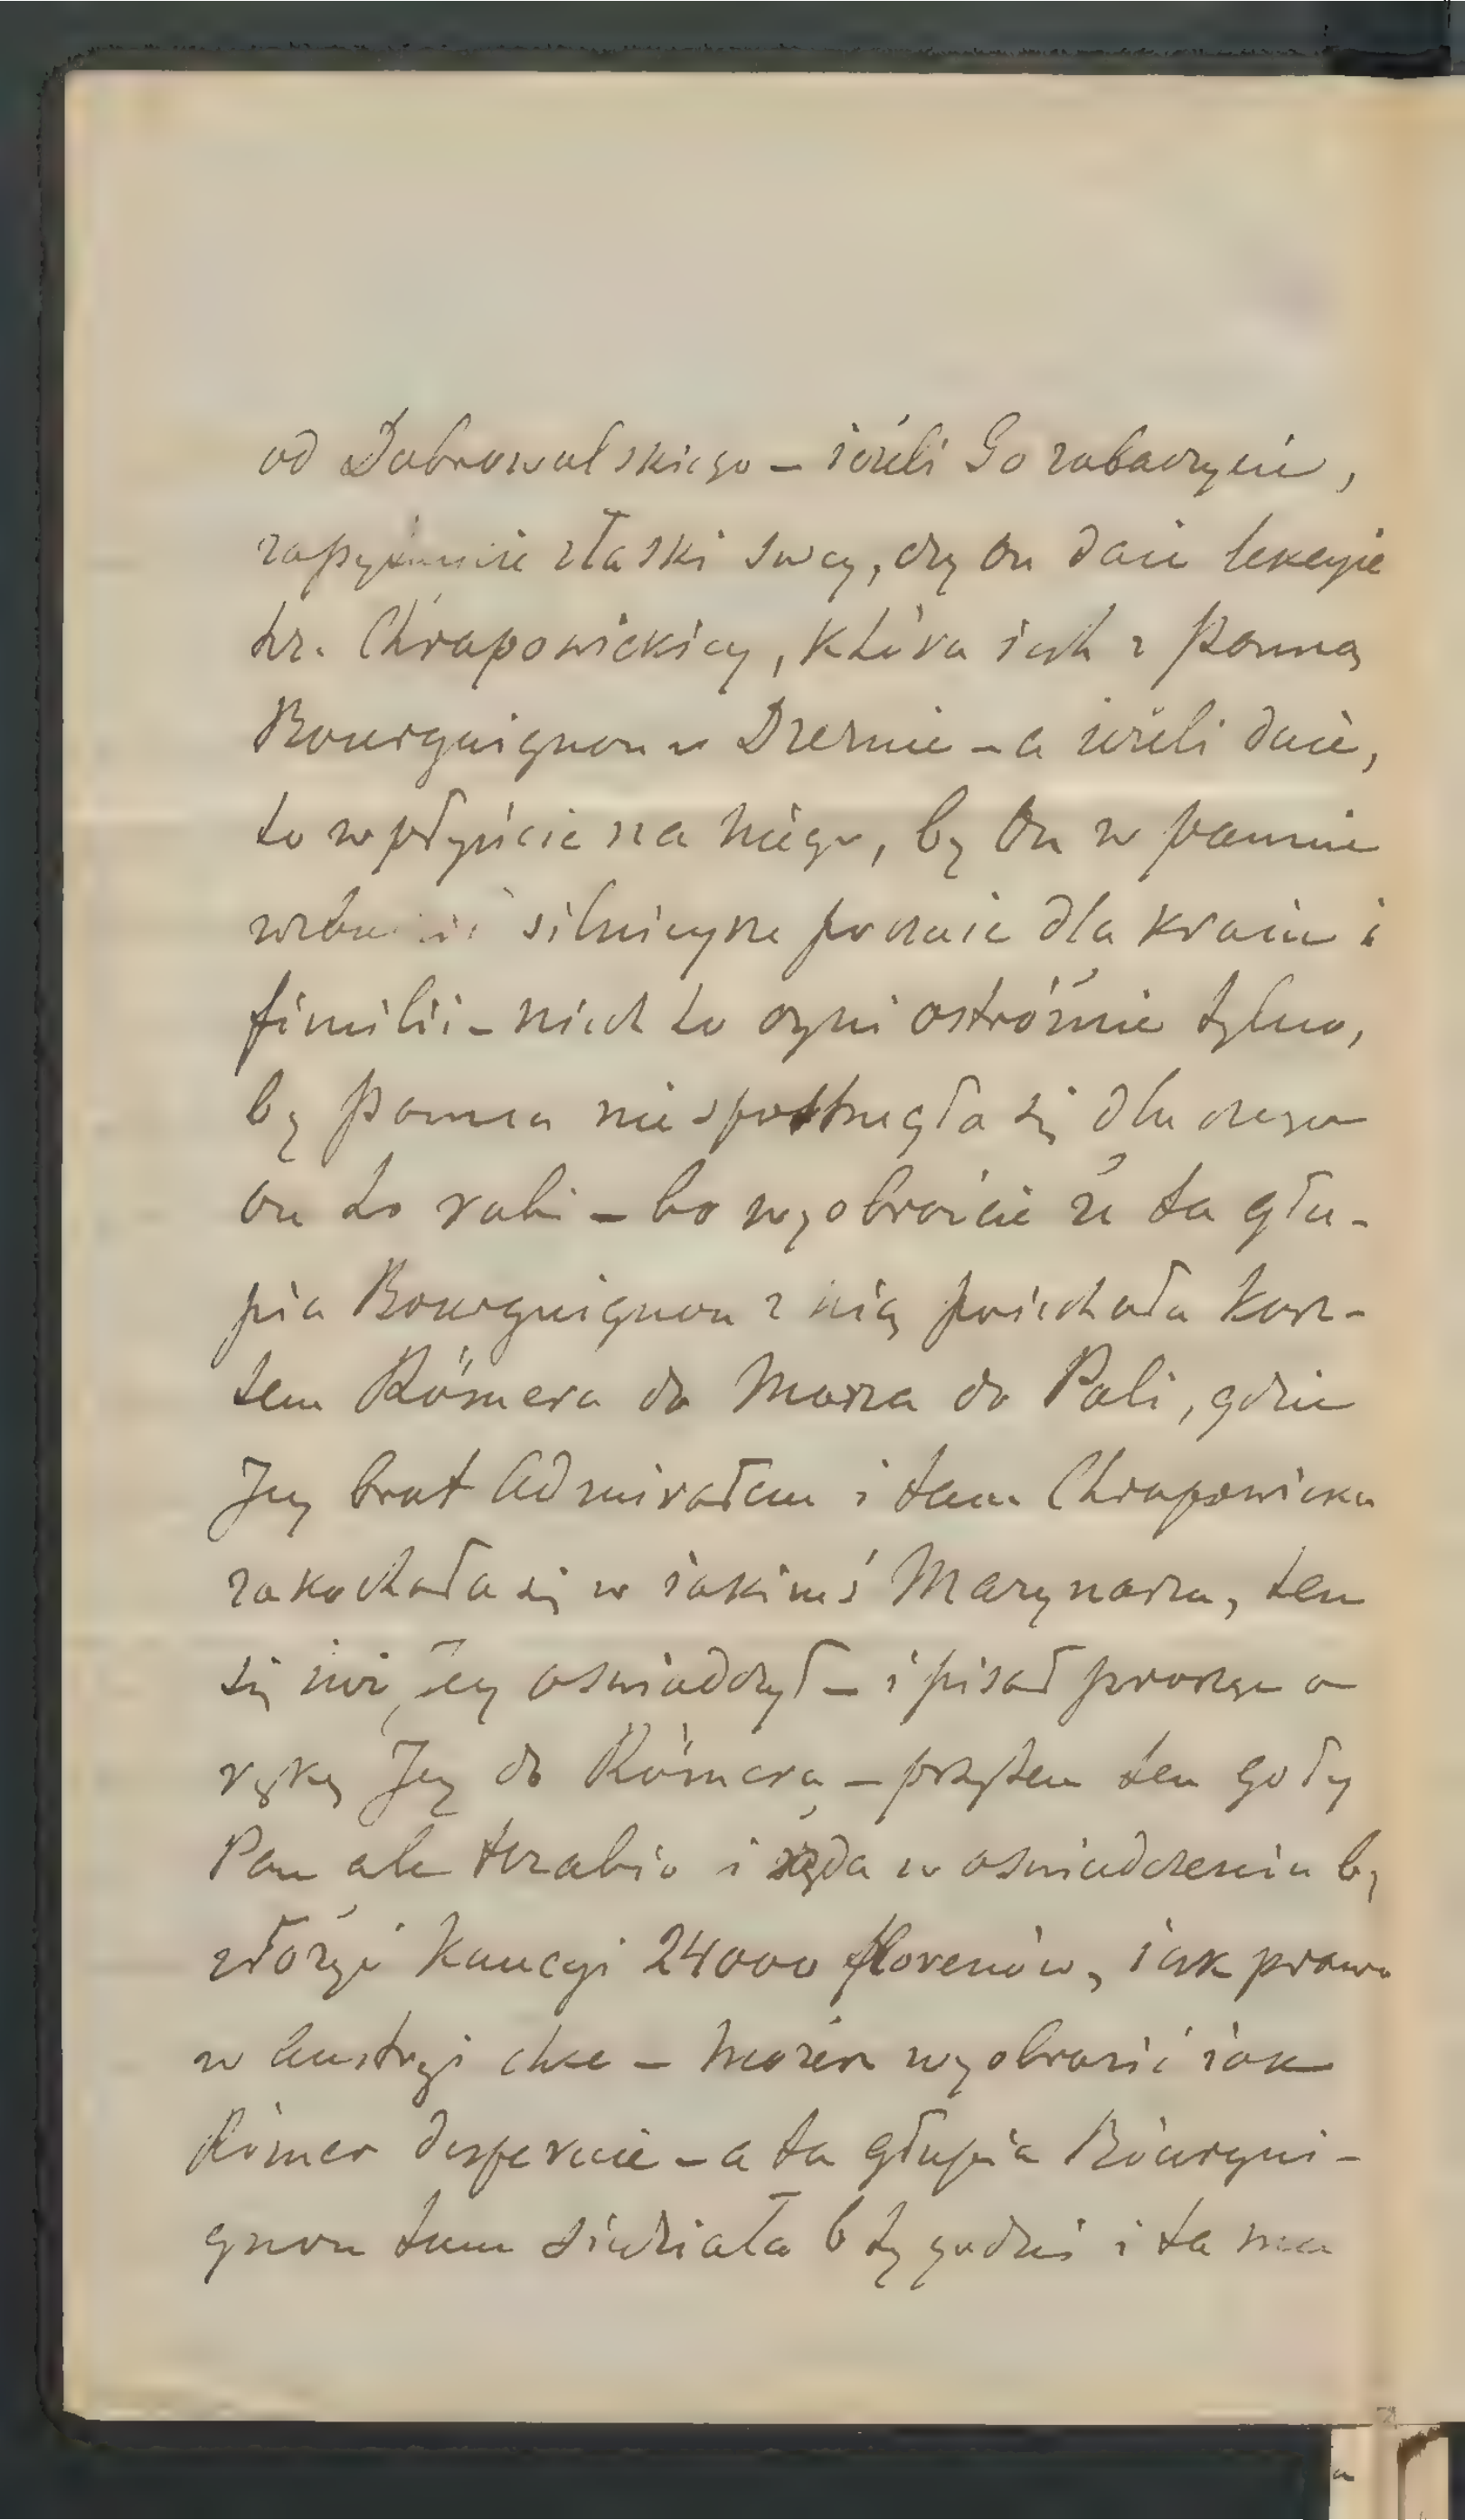 od Dobrowolskiego – ieżeli Go zobaczycie,
zapytaicie złaski swey, czy On daie lekcyie
hr. Chrapowickiey, która iest z Panną
Bourguignon w Dreznie – a ieżeli daie,
to wpłyńcie na niego, by On w pannie
wzbudził silnieysze poczucie dla kraiu i
fimilii – niech to czyni ostróżnie tylko,
by Panna niespostrzegła się dla czego
On to robi – bo wyobraźcie że ta głu-
pia Bourguignon z nią poiechała kosz-
tem Römera do Morza do Poli, gdzie
Jey brat Admirałem i tam Chrapowicka
zakochała się w iakimś Marynarzu, ten
się iuż iey oświadczył – i pisał prosząc o
rękę Jey do Römera – przytem ten goły
Pan ale Hrabia i żąda w oświadczeniu by
złożyć kaucyi 24000 florenów, iak prawo
w Austryi chce – możesz wyobrazić iak
Römer desperuie – a ta głupia Bourgui-
gnon tam siedziała 6 tygodni i ta ma